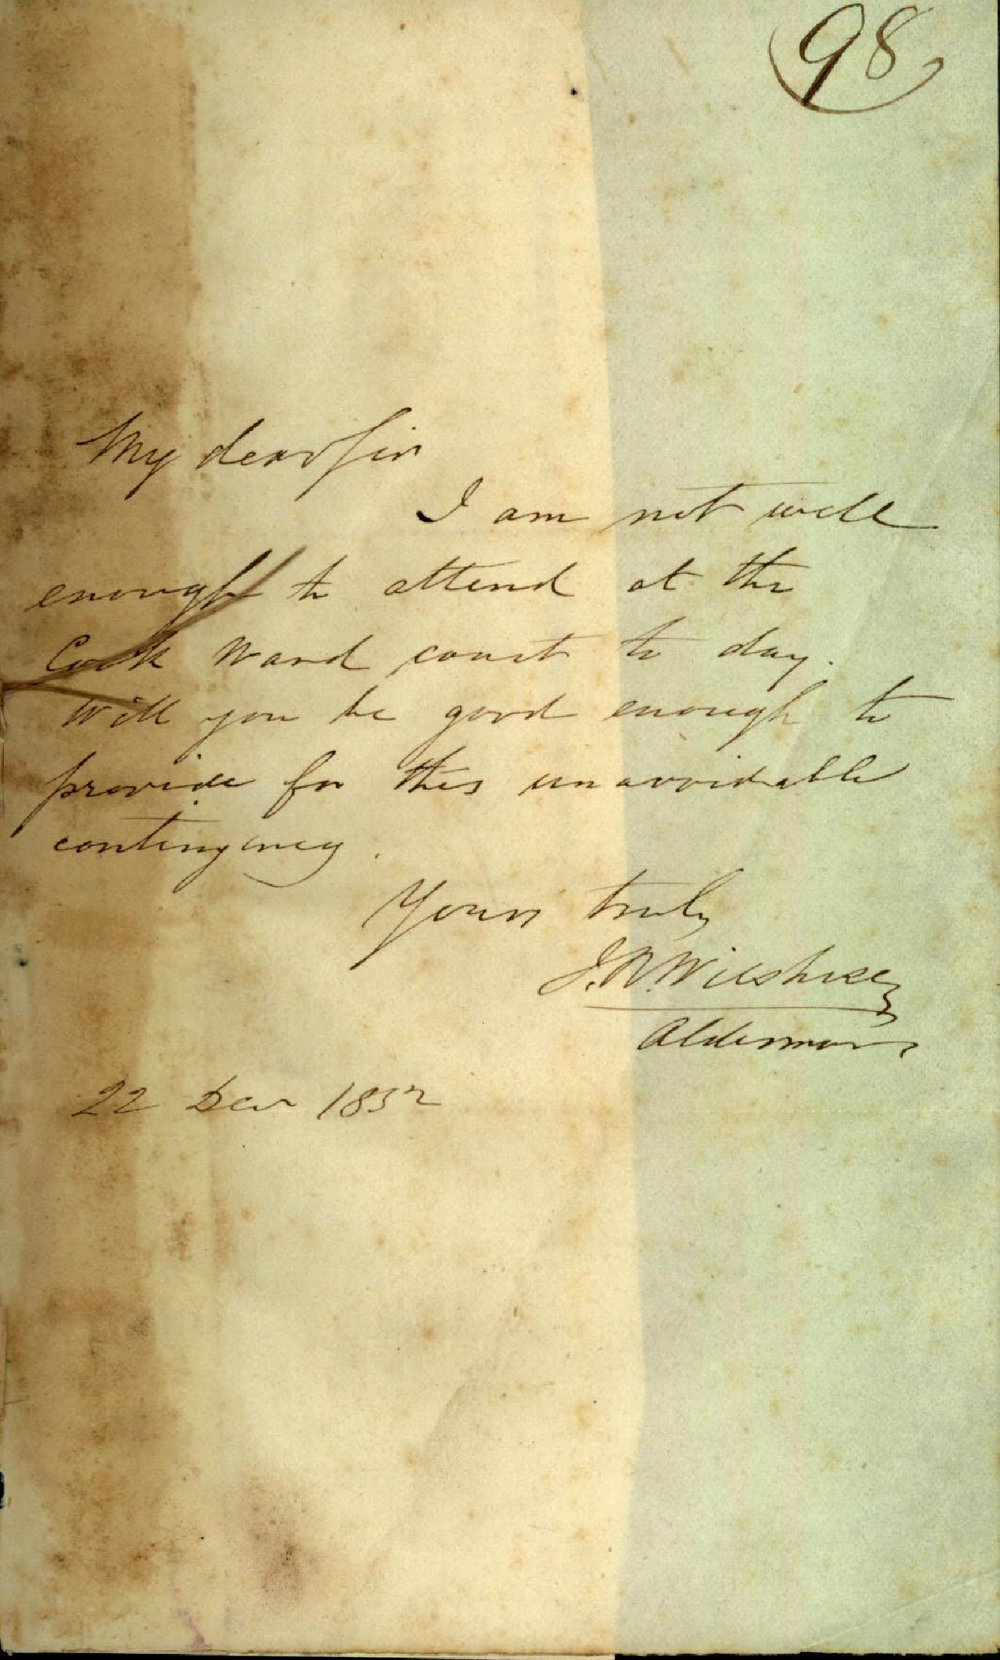 98
My dear Sir
I am not well
enough to attend at the
Cook Ward court to day.
Will you be good enough to
provide for this unavoidable
contingency.
Yours truly
J. R. Wilshire
Alderman
22 Decr 1852